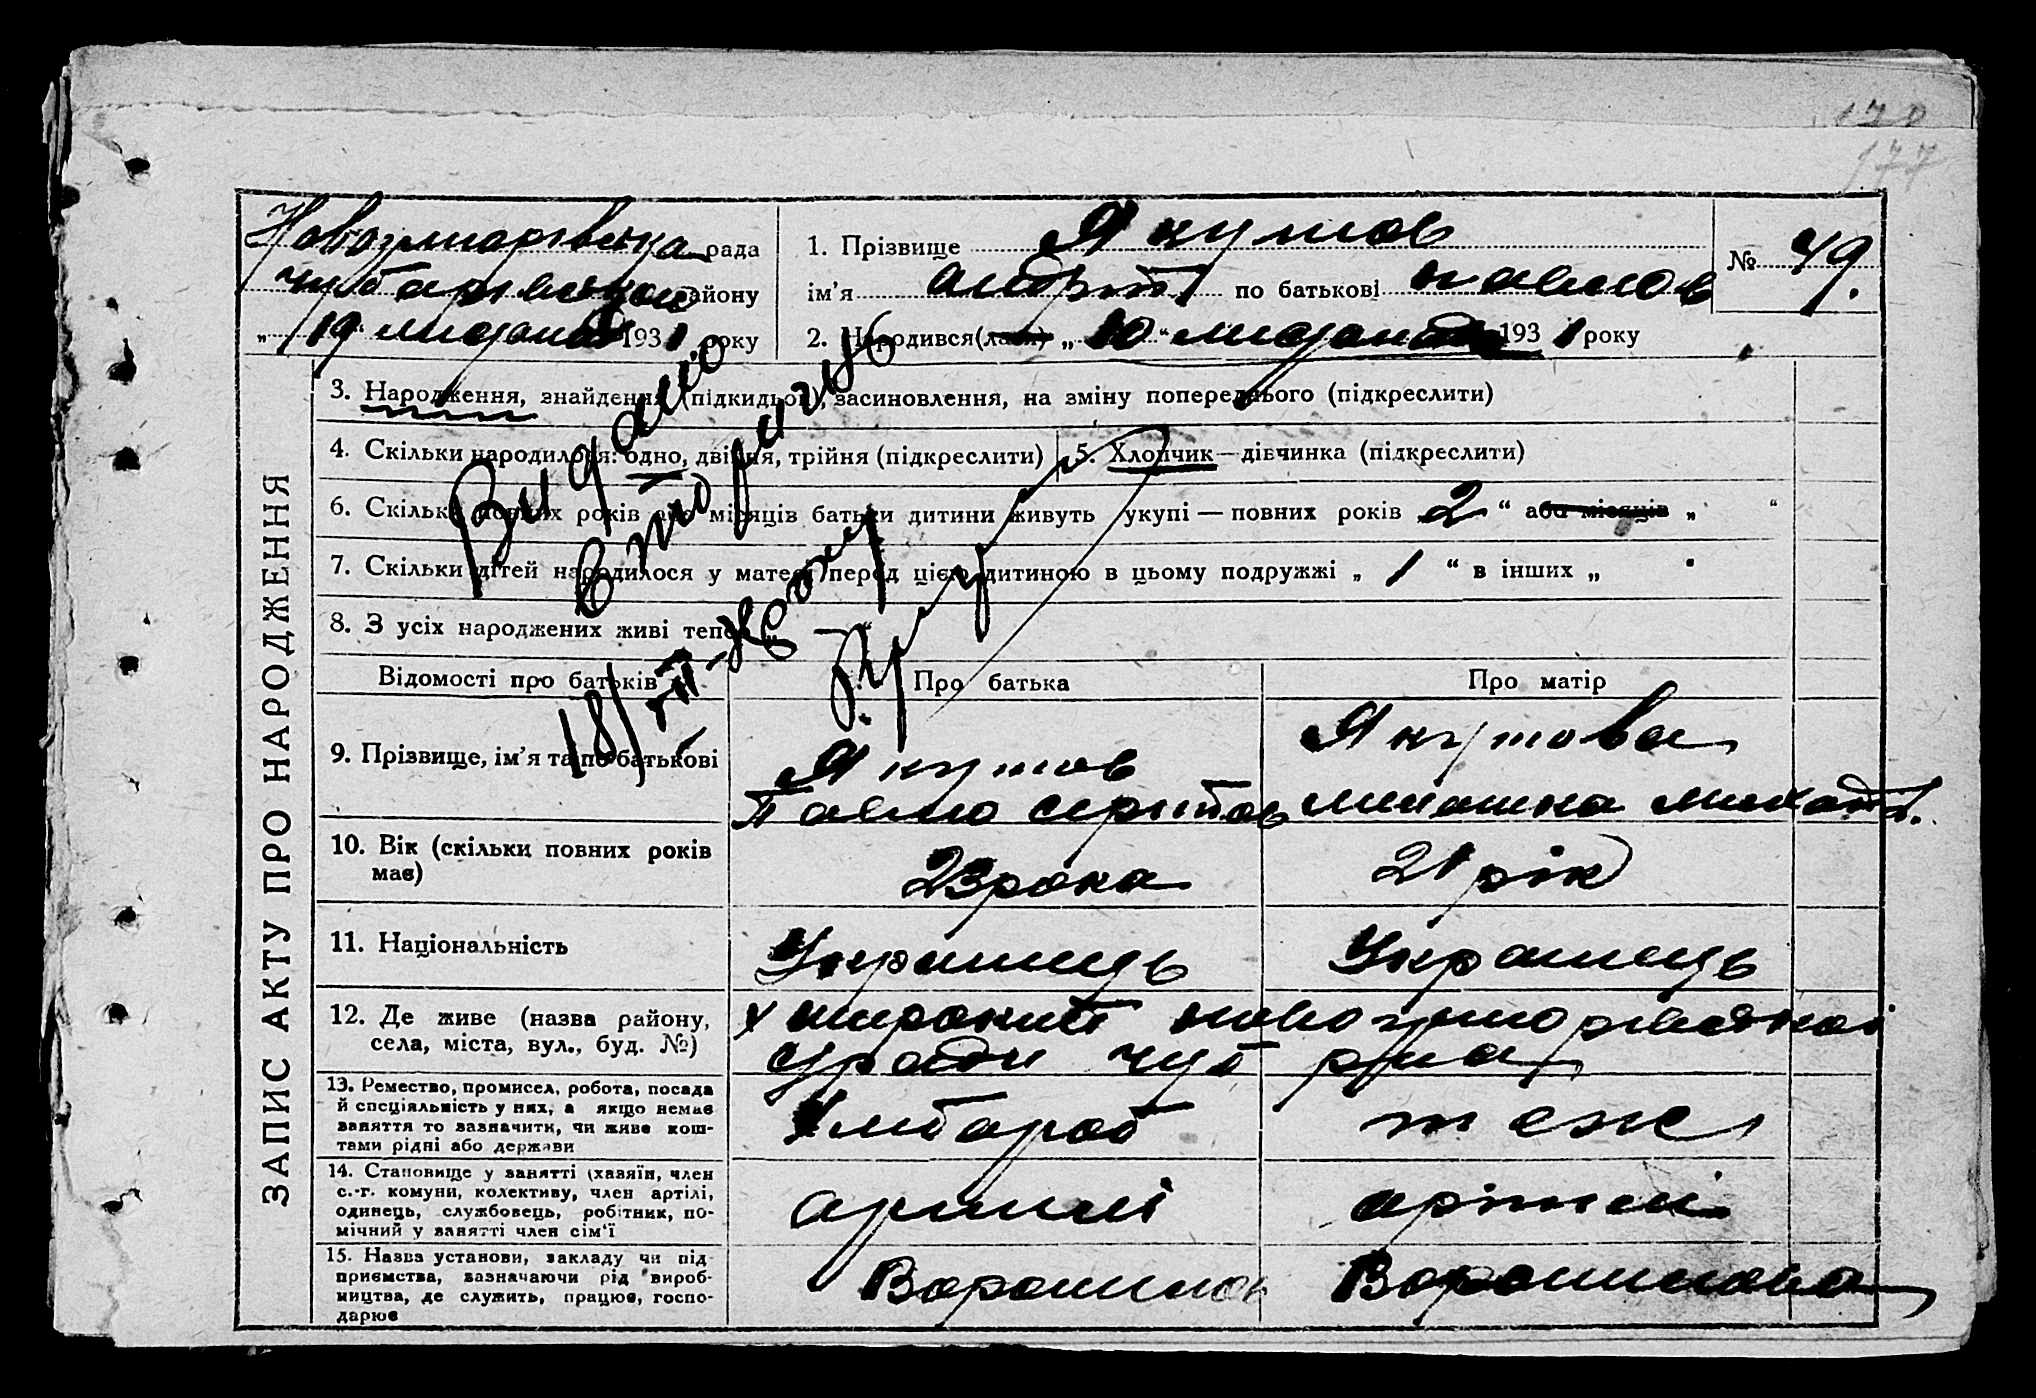 177
рада
району
„ 19 “ 1931 року
1. Прізвище Якутов
ім’я по батькові Павлов
№ 49.
2. Народився(лась) „ 10 “ 1931 року
ЗАПИС АКТУ ПРО НАРОДЖЕННЯ
3. Народження, знайдення (підкидьок), засиновлення, на зміну попереднього (підкреслити)
4. Скільки народилося: одно, двійня, трійня (підкреслити)
5. Хлопчик — дівчинка (підкреслити)
6. Скільки повних років або місяців батьки дитини живуть укупі — повних років 2 “ або місяців „ “
7. Скільки дітей народилося у матері перед цією дитиною в цьому подружжі „ 1 “ в інших „ “
8. З усіх народжених живі тепер
Видано
вторичну
18/
Відомості про батьків
Про батька
Про матір
9. Прізвище, ім’я та по батькові
Якутов
Павло
Якутова
10. Вік (скільки повних років
має)
23 рока
21 рік
11. Національність
Українець
Українець
12. Де живе (назва району,
села, міста, вул., буд. №)
х Широкий
сради Чуб рна
13. Ремество, промисел, робота, посада
й спеціяльність у них, а якщо немає
заняття то зазначити, чи живе кош-
тами рідні або держави
Хлібороб
теж
14. Становище у занятті (хазяїн, член
с.-г. комуни, колективу, член артілі,
одинець, службовець, робітник, по-
мічний у занятті член сім’ї
артілі
артілі
15. Назва установи, закладу чи під-
приємства, зазначаючи рід вироб-
ництва, де служить, працює, госпо-
дарює
Ворошилов
Ворошилова